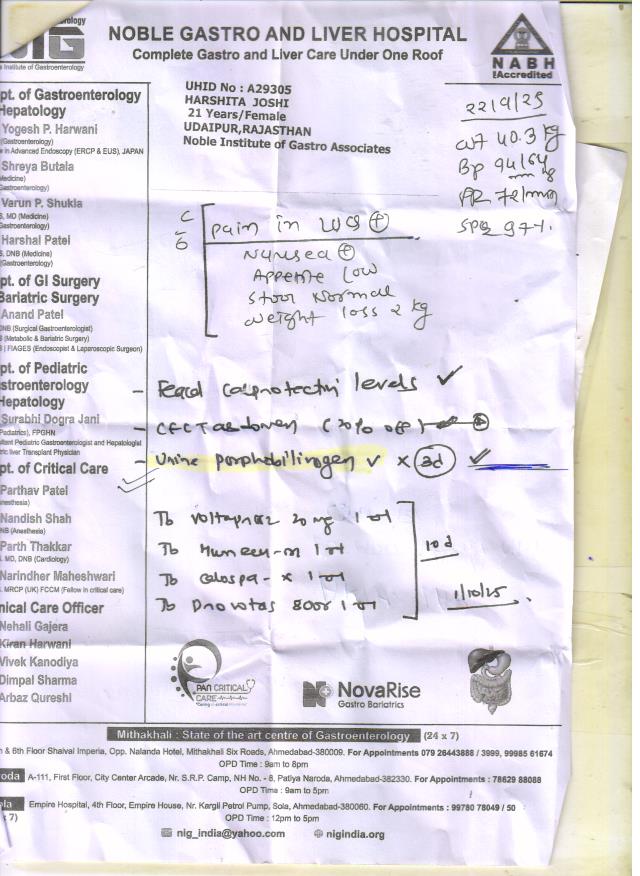 NOBLE GASTRO AND LIVER HOSPITAL
Complete Gastro and Liver Care Under One Roof
s Institute of Gastroenterology
NABH
Accredited
UHID No : A29305
HARSHITA JOSHI
21 Years/Female
UDAIPUR,RAJASTHAN
Noble Institute of Gastro Associates
22/9/25
WT 40.3 kg
Bp 94/64
PR 72/min
SPO2 97%
pt. of Gastroenterology
Hepatology
Yogesh P. Harwani
(Gastroenterology)
e in Advanced Endoscopy (ERCP & EUS), JAPAN
Shreya Butala
Medicine)
Gastroenterology)
Varun P. Shukla
, MD (Medicine)
Gastroenterology)
Harshal Patel
, DNB (Medicine)
(Gastroenterology)
pt. of GI Surgery
Bariatric Surgery
Anand Patel
DNB (Surgical Gastroenterologist)
(Metabolic & Bariatric Surgery)
| FIAGES (Endoscopist & Laparoscopic Surgeon)
pt. of Pediatric
stroenterology
Hepatology
Surabhi Dogra Jani
Pediatrics), FPGHN
ltant Pediatric Gastroenterologist and Hepatologist
tric liver Transplant Physician
pt. of Critical Care
Parthav Patel
nesthesia)
Nandish Shah
NB (Anesthesia)
Parth Thakkar
MD, DNB (Cardiology)
Narindher Maheshwari
MRCP (UK) FCCM (Fellow in critical care)
nical Care Officer
Nehali Gajera
Kiran Harwani
Vivek Kanodiya
Dimpal Sharma
Arbaz Qureshi
C/o
pain in +
Nausea +
Appetite low
Stool Normal
Weight loss 2 kg
- Fecal calprotectin levels ✓
- CECT abdomen (20% off)
- Urine porphobilinogen ✓ x 3d ✓
Tb 20 mg 1
Tb 1
Tb - x 1
Tb 1
10 d
1/10/25
PAN CRITICAL
CARE
NovaRise
Gastro Bariatrics
Mithakhali : State of the art centre of Gastroenterology (24 x 7)
h & 6th Floor Shaival Imperia, Opp. Nalanda Hotel, Mithakhali Six Roads, Ahmedabad-380009. For Appointments 079 26443888 / 3999, 99985 61674
OPD Time : 9am to 8pm
roda A-111, First Floor, City Center Arcade, Nr. S.R.P. Camp, NH No. - 8, Patiya Naroda, Ahmedabad-382330. For Appointments : 78629 88088
OPD Time : 9am to 5pm
ola Empire Hospital, 4th Floor, Empire House, Nr. Kargil Petrol Pump, Sola, Ahmedabad-380060. For Appointments : 99780 78049 / 50
x 7) OPD Time : 12pm to 5pm
nig_india@yahoo.com nigindia.org